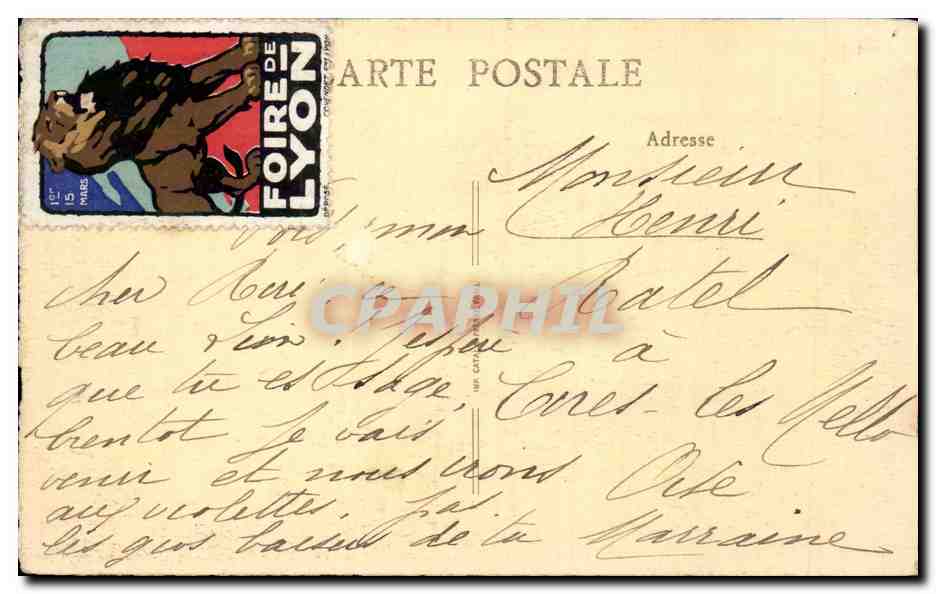 FOIRE DE
LYON
1er
15
MARS
CARTE POSTALE
Adresse
Monsieur
Henri
Ratel
à
Cires-les Mello
Oise
Vois, mon
cher Riri ce
beau Lion. J'espère
que tu es sage,
bientot je vais
venir et nous irons
aux violettes.
les gros baisers de ta Marraine
IMP. CATALA
CPAPHIL